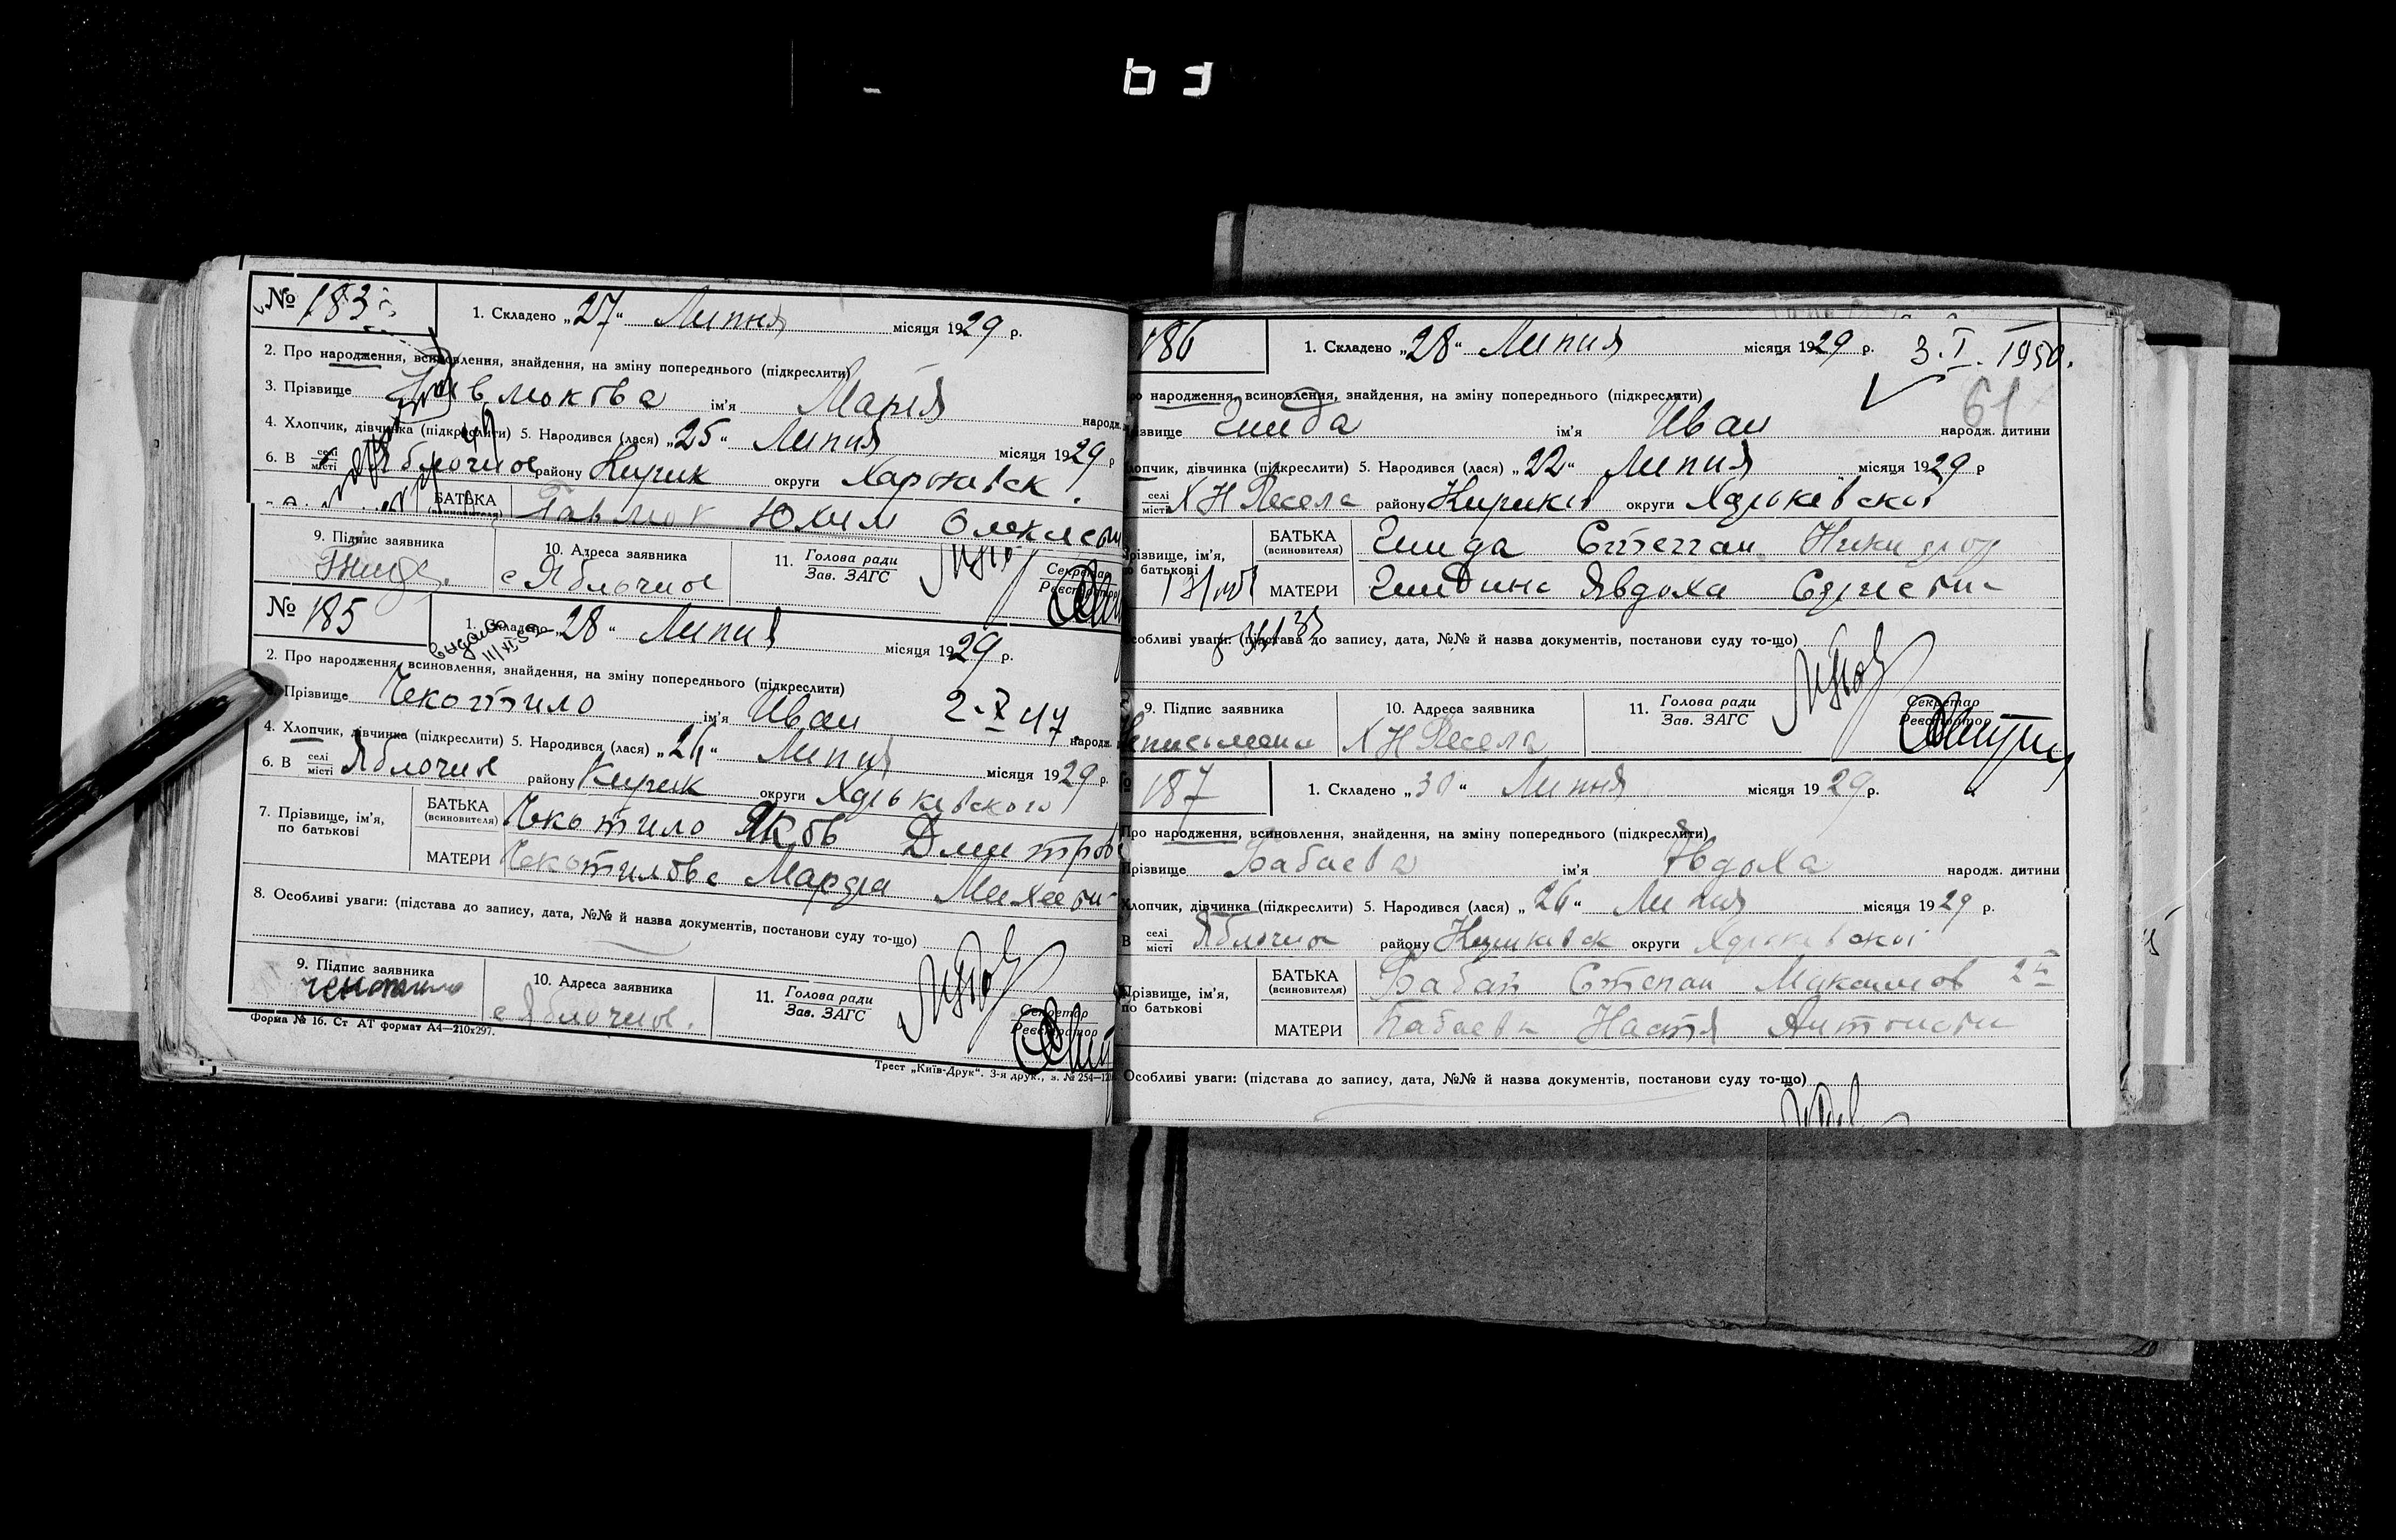 63
№ 183
1. Складено „27“ Липня місяця 1929 р.
2. Про народження, всиновлення, знайдення, на зміну попереднього (підкреслити)
3. Прізвище ім'я Марія народж.
4. Хлопчик, дівчинка (підкреслити) 5. Народився (лася) „25“ Липня місяця 1929 р
6. В селі місті Яблочное району Кирик округи Харьковск.
БАТЬКА (всиновителя) Павлюк Юхим Олексеев
9. Підпис заявника
10. Адреса заявника с Яблочное
11. Голова ради Зав. ЗАГС
Секретар Реєстратор
№ 185
1. Складено „28“ Липня місяця 1929 р.
видано III/XI 59
2. Про народження, всиновлення, знайдення, на зміну попереднього (підкреслити)
3. Прізвище Чекотило ім'я Иван 2-X 47. народж.
4. Хлопчик, дівчинка (підкреслити) 5. Народився (лася) „26“ Липня місяця 1929 р.
6. В селі місті Яблочне району Кирик округи Харьковского
7. Прізвище, ім'я, по батькові
БАТЬКА (всиновителя) Чекотило Яков Дмитров
МАТЕРИ Чекотилова Марфа
8. Особливі уваги: (підстава до запису, дата, №№ й назва документів, постанови суду то-що)
9. Підпис заявника Чекотило
10. Адреса заявника с Яблочное.
11. Голова ради Зав. ЗАГС
Секретар Реєстратор
Форма № 16. Ст АТ формат А4—210х297.
Трест „Київ-Друк“. 3-я друк., з. № 254—12
186
1. Складено „28“ Липня місяця 1929 р.
3.I.1950.
61
народження, всиновлення, знайдення, на зміну попереднього (підкреслити)
Прізвище Гнида ім'я Иван народж. дитини
Хлопчик, дівчинка (підкреслити) 5. Народився (лася) „22“ Липня місяця 1929 р
селі місті Х Н Весела району округи Харьковскої
Прізвище, ім'я, по батькові
БАТЬКА (всиновителя) Гнида Степан
МАТЕРИ Гнидина Явдоха
Особливі уваги: (підстава до запису, дата, №№ й назва документів, постанови суду то-що)
9. Підпис заявника
10. Адреса заявника Х Н Весела
11. Голова ради Зав. ЗАГС
Секретар Реєстратор
№ 187
1. Складено „30“ Липня місяця 1929 р.
Про народження, всиновлення, знайдення, на зміну попереднього (підкреслити)
Прізвище Бабаева ім'я Явдоха народж. дитини
Хлопчик, дівчинка (підкреслити) 5. Народився (лася) „26“ Липня місяця 1929 р.
В селі місті Яблочное району округи Харьковскої
Прізвище, ім'я, по батькові
БАТЬКА (всиновителя) Бабай Степан Максимов
МАТЕРИ Бабаева Настя
Особливі уваги: (підстава до запису, дата, №№ й назва документів, постанови суду то-що)